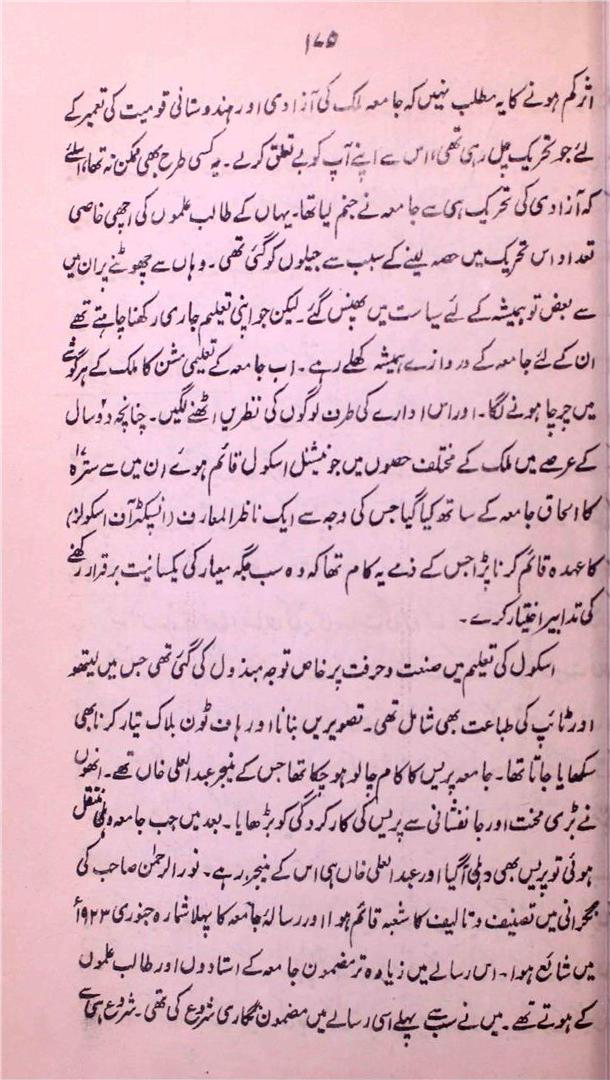 ۱۷۵
اثر کم ہونے کا یہ مطلب نہیں کہ جامعہ ملک کی آزادی اور ہندوستانی قومیت کی تعمیر کے
لئے جو تحریک چل رہی تھی، اس سے اپنے آپ کو بے تعلق کرلے۔ یہ کسی طرح بھی ممکن نہ تھا، اسلئے
کہ آزادی کی تحریک ہی سے جامعہ نے جنم لیا تھا۔ یہاں کے طالب علموں کی اچھی خاصی
تعداد اس تحریک میں حصہ لینے کے سبب سے جیلوں کو گئی تھی۔ وہاں سے چھوٹنے پر ان میں
سے بعض تو ہمیشہ کے لئے سیاست میں پھنس گئے۔ لیکن جو اپنی تعلیم جاری رکھنا چاہتے تھے
ان کے لئے جامعہ کے دروازے ہمیشہ کھلے رہے۔ اب جامعہ کے تعلیمی مشن کا ملک کے ہر گوشے
میں چرچا ہونے لگا۔ اور اس ادارے کی طرف لوگوں کی نظریں اٹھنے لگیں۔ چنانچہ دو سال
کے عرصے میں ملک کے مختلف حصوں میں جو نیشنل اسکول قائم ہوئے ان میں سے سترہ
کا الحاق جامعہ کے ساتھ کیا گیا جس کی وجہ سے ایک ناظر المعارف (انسپکٹر آف اسکولز)
کا عہدہ قائم کرنا پڑا جس کے ذمے یہ کام تھا کہ وہ سب جگہ معیار کی یکسانیت برقرار رکھنے
کی تدابیر اختیار کرے۔
اسکول کی تعلیم میں صنعت و حرفت پر خاص توجہ مبذول کی گئی تھی جس میں لیتھو
اور ٹائپ کی طباعت بھی شامل تھی۔ تصویریں بنانا اور ہاف ٹون بلاک تیار کرنا بھی
سکھایا جاتا تھا۔ جامعہ پریس کا کام چالو ہو چکا تھا جس کے منیجر عبدالعلی خاں تھے۔ انھوں
نے بڑی محنت اور جانفشانی سے پریس کی کارکردگی کو بڑھایا۔ بعد میں جب جامعہ دہلی منتقل
ہوئی تو پریس بھی دہلی آگیا اور عبدالعلی خاں ہی اس کے منیجر رہے۔ نورالرحمٰن صاحب کی
نگرانی میں تصنیف و تالیف کا شعبہ قائم ہوا اور رسالۂ جامعہ کا پہلا شمارہ جنوری ۱۹۲۳ء
میں شائع ہوا۔ اس رسالے میں زیادہ تر مضمون جامعہ کے استادوں اور طالب علموں
کے ہوتے تھے۔ میں نے سب سے پہلے اسی رسالے میں مضمون نگاری شروع کی تھی۔ شروع ہی سے